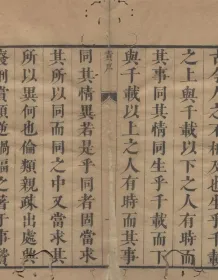 之上與千載以下之人有時而
其事同其情同生乎千載而下
與千載以上之人有時而其事
同其情異若是乎同者固當求
其所以同而同之中又當求其
所以異何也倫類親疎出處與
廢刑賞順逆禍福之著于事